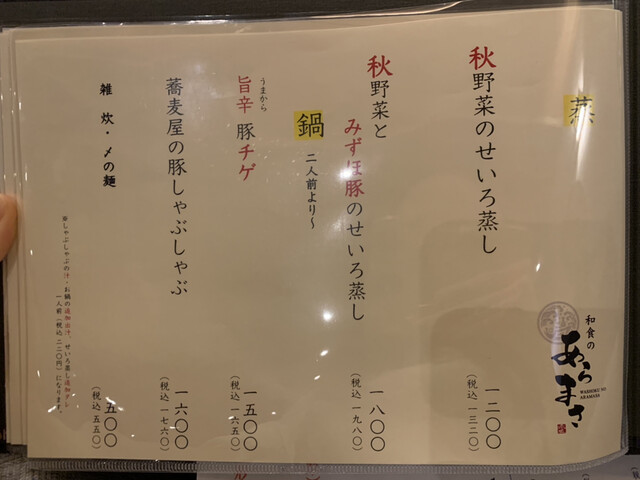 蒸
秋野菜のせいろ蒸し
一二〇〇
(税込 一三二〇)
秋野菜と
みずほ豚のせいろ蒸し
一八〇〇
(税込 一九八〇)
鍋 二人前より〜
うまから
旨辛 豚チゲ
一五〇〇
(税込 一六五〇)
蕎麦屋の豚しゃぶしゃぶ
一六〇〇
(税込 一七六〇)
雑炊・〆の麺
五〇〇
(税込 五五〇)
※しゃぶしゃぶの汁・お鍋の追加出汁、せいろ蒸し追加ダレ
一人前(税込 二二〇円)になります。
和食の
あらまさ
WASHOKU NO
ARAMASA